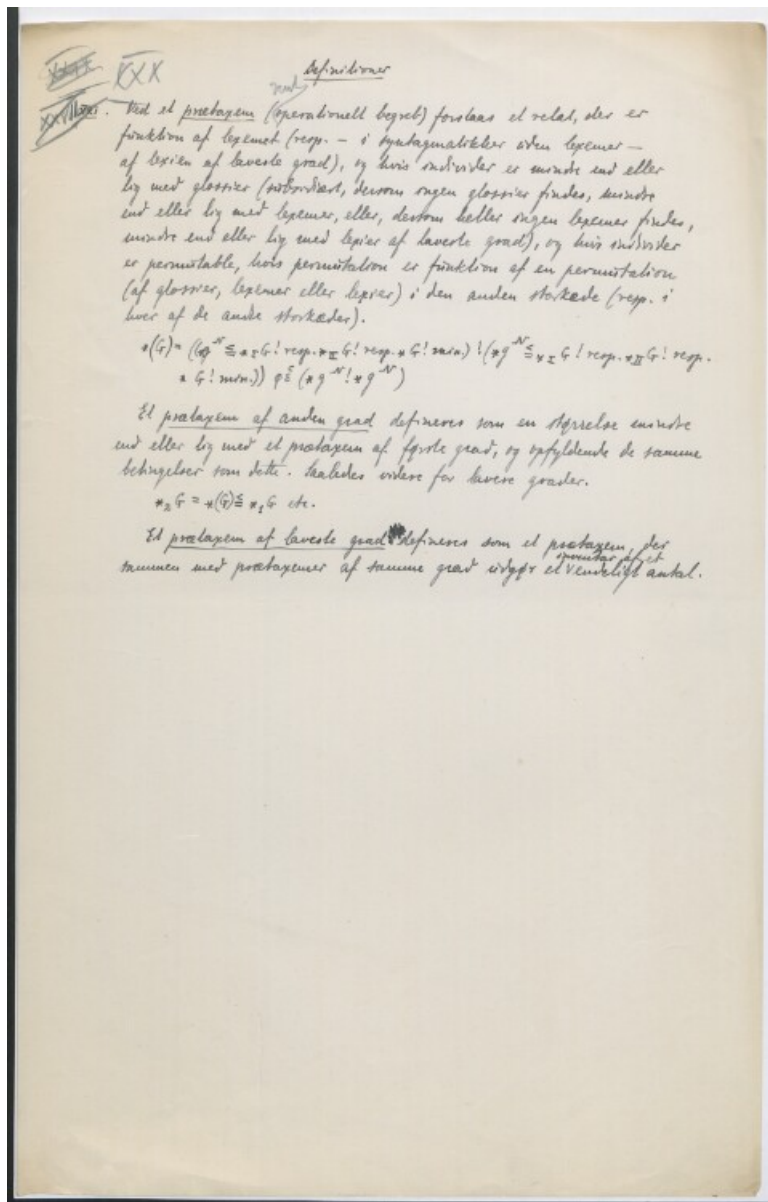 Definitioner
XXX
Ved et prætaxem (operationelt begreb) forstaas et relat, der er
funktion af lexemet (resp. – i syntagmatikker uden lexemer –
af lexien af laveste grad), og hvis individer er mindre end eller
lig med glossier (subordinært, dersom ingen glossier findes, mindre
end eller lig med lexemer, eller, dersom heller ingen lexemer findes,
mindre end eller lig med lexier af laveste grad), og hvis individer
er permutable, hvis permutation er funktion af en permutation
(af glossier, lexemer eller lexier) i den anden storkæde (resp. i
hver af de andre storkæder).
Et prætaxem af anden grad defineres som en størrelse mindre
end eller lig med et prætaxem af første grad, og opfyldende de samme
betingelser som dette. Saaledes videre for lavere grader.
Et prætaxem af laveste grad defineres som et prætaxem, der
inventar af et
sammen med prætaxemer af samme grad udgør et vendeligt antal.